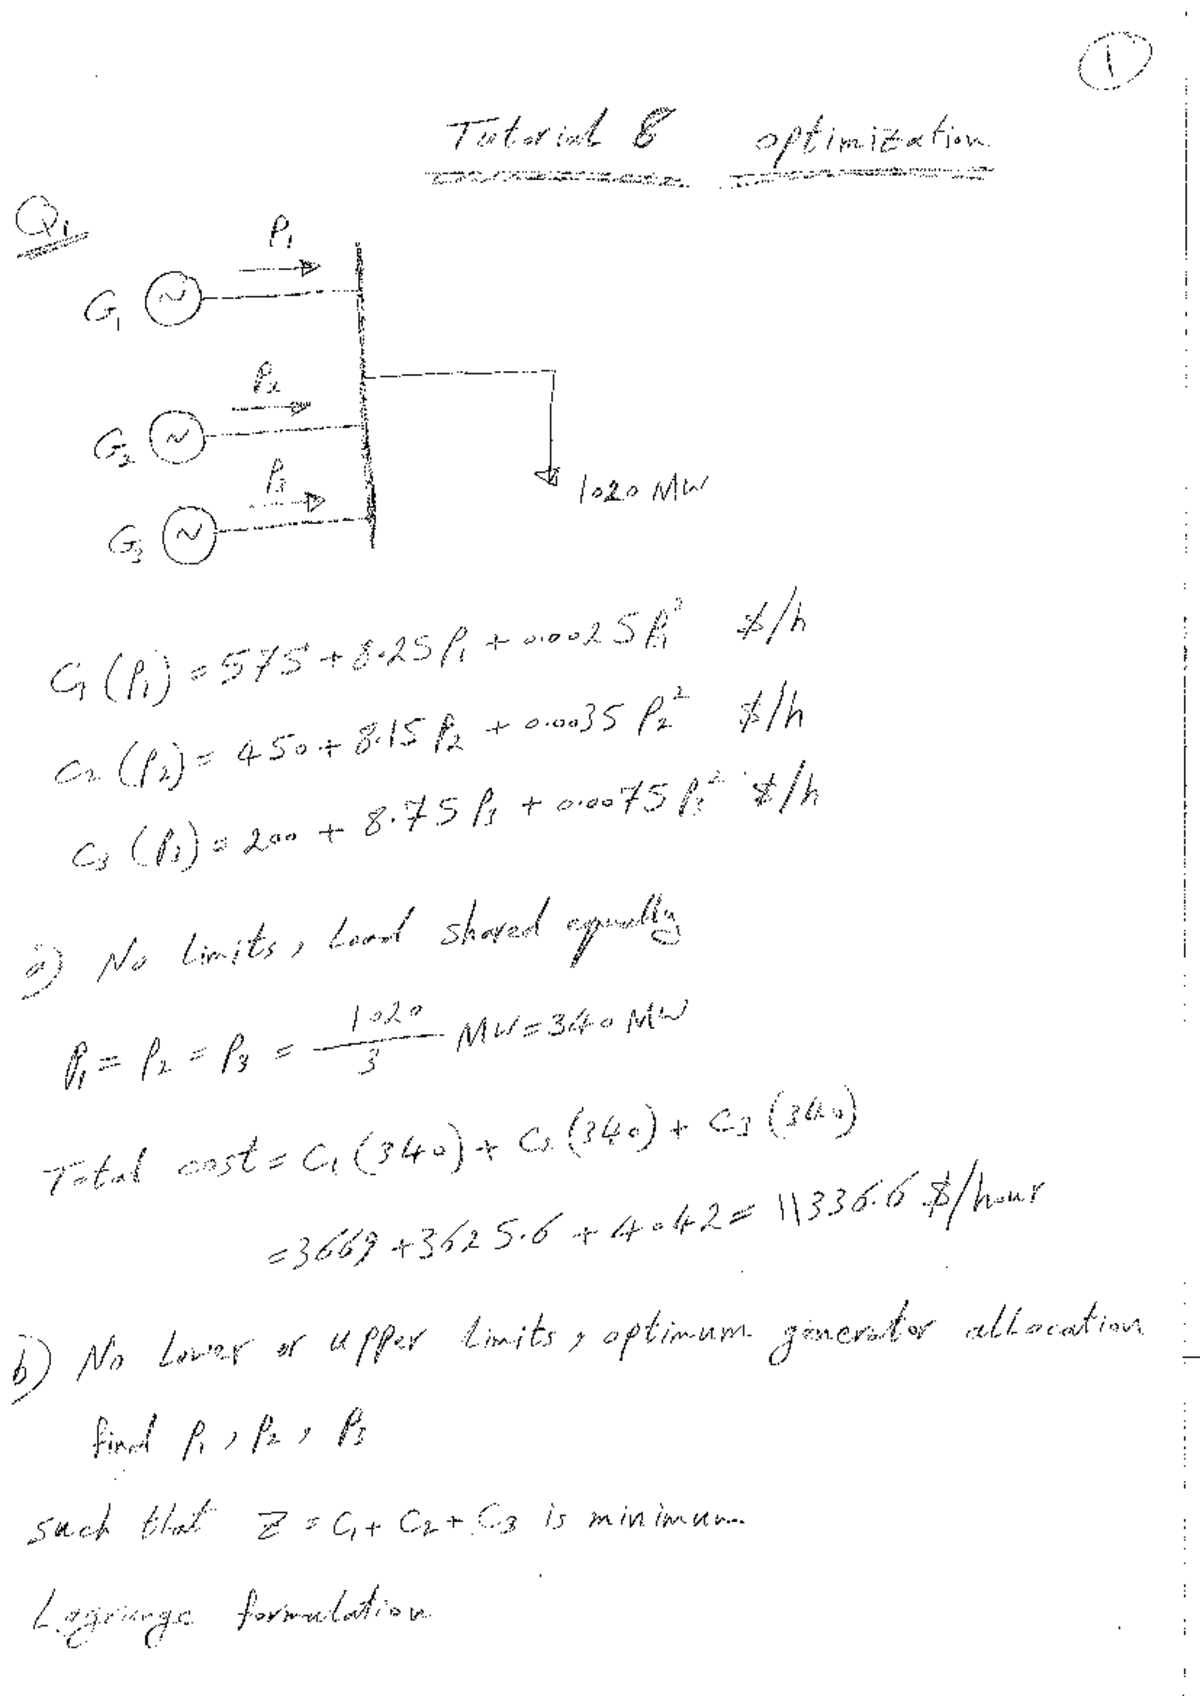 1
Tutorial 8 optimization
Q1
P1
G1 ~
P2
G2 ~
P3
G3 ~
1020 MW
C1 (P1) = 575 + 8.25 P1 + 0.0025 P1² $/h
C2 (P2) = 450 + 8.15 P2 + 0.0035 P2² $/h
C3 (P3) = 200 + 8.75 P3 + 0.0075 P3² $/h
a) No limits, Load shared equally
P1 = P2 = P3 = 1020/3 MW = 340 MW
Total cost = C1 (340) + C2 (340) + C3 (340)
= 3669 + 3625.6 + 4042 = 11336.6 $/hour
b) No Lower or upper limits, optimum generator allocation
find P1, P2, P3
such that Z = C1 + C2 + C3 is minimum
Lagrange formulation